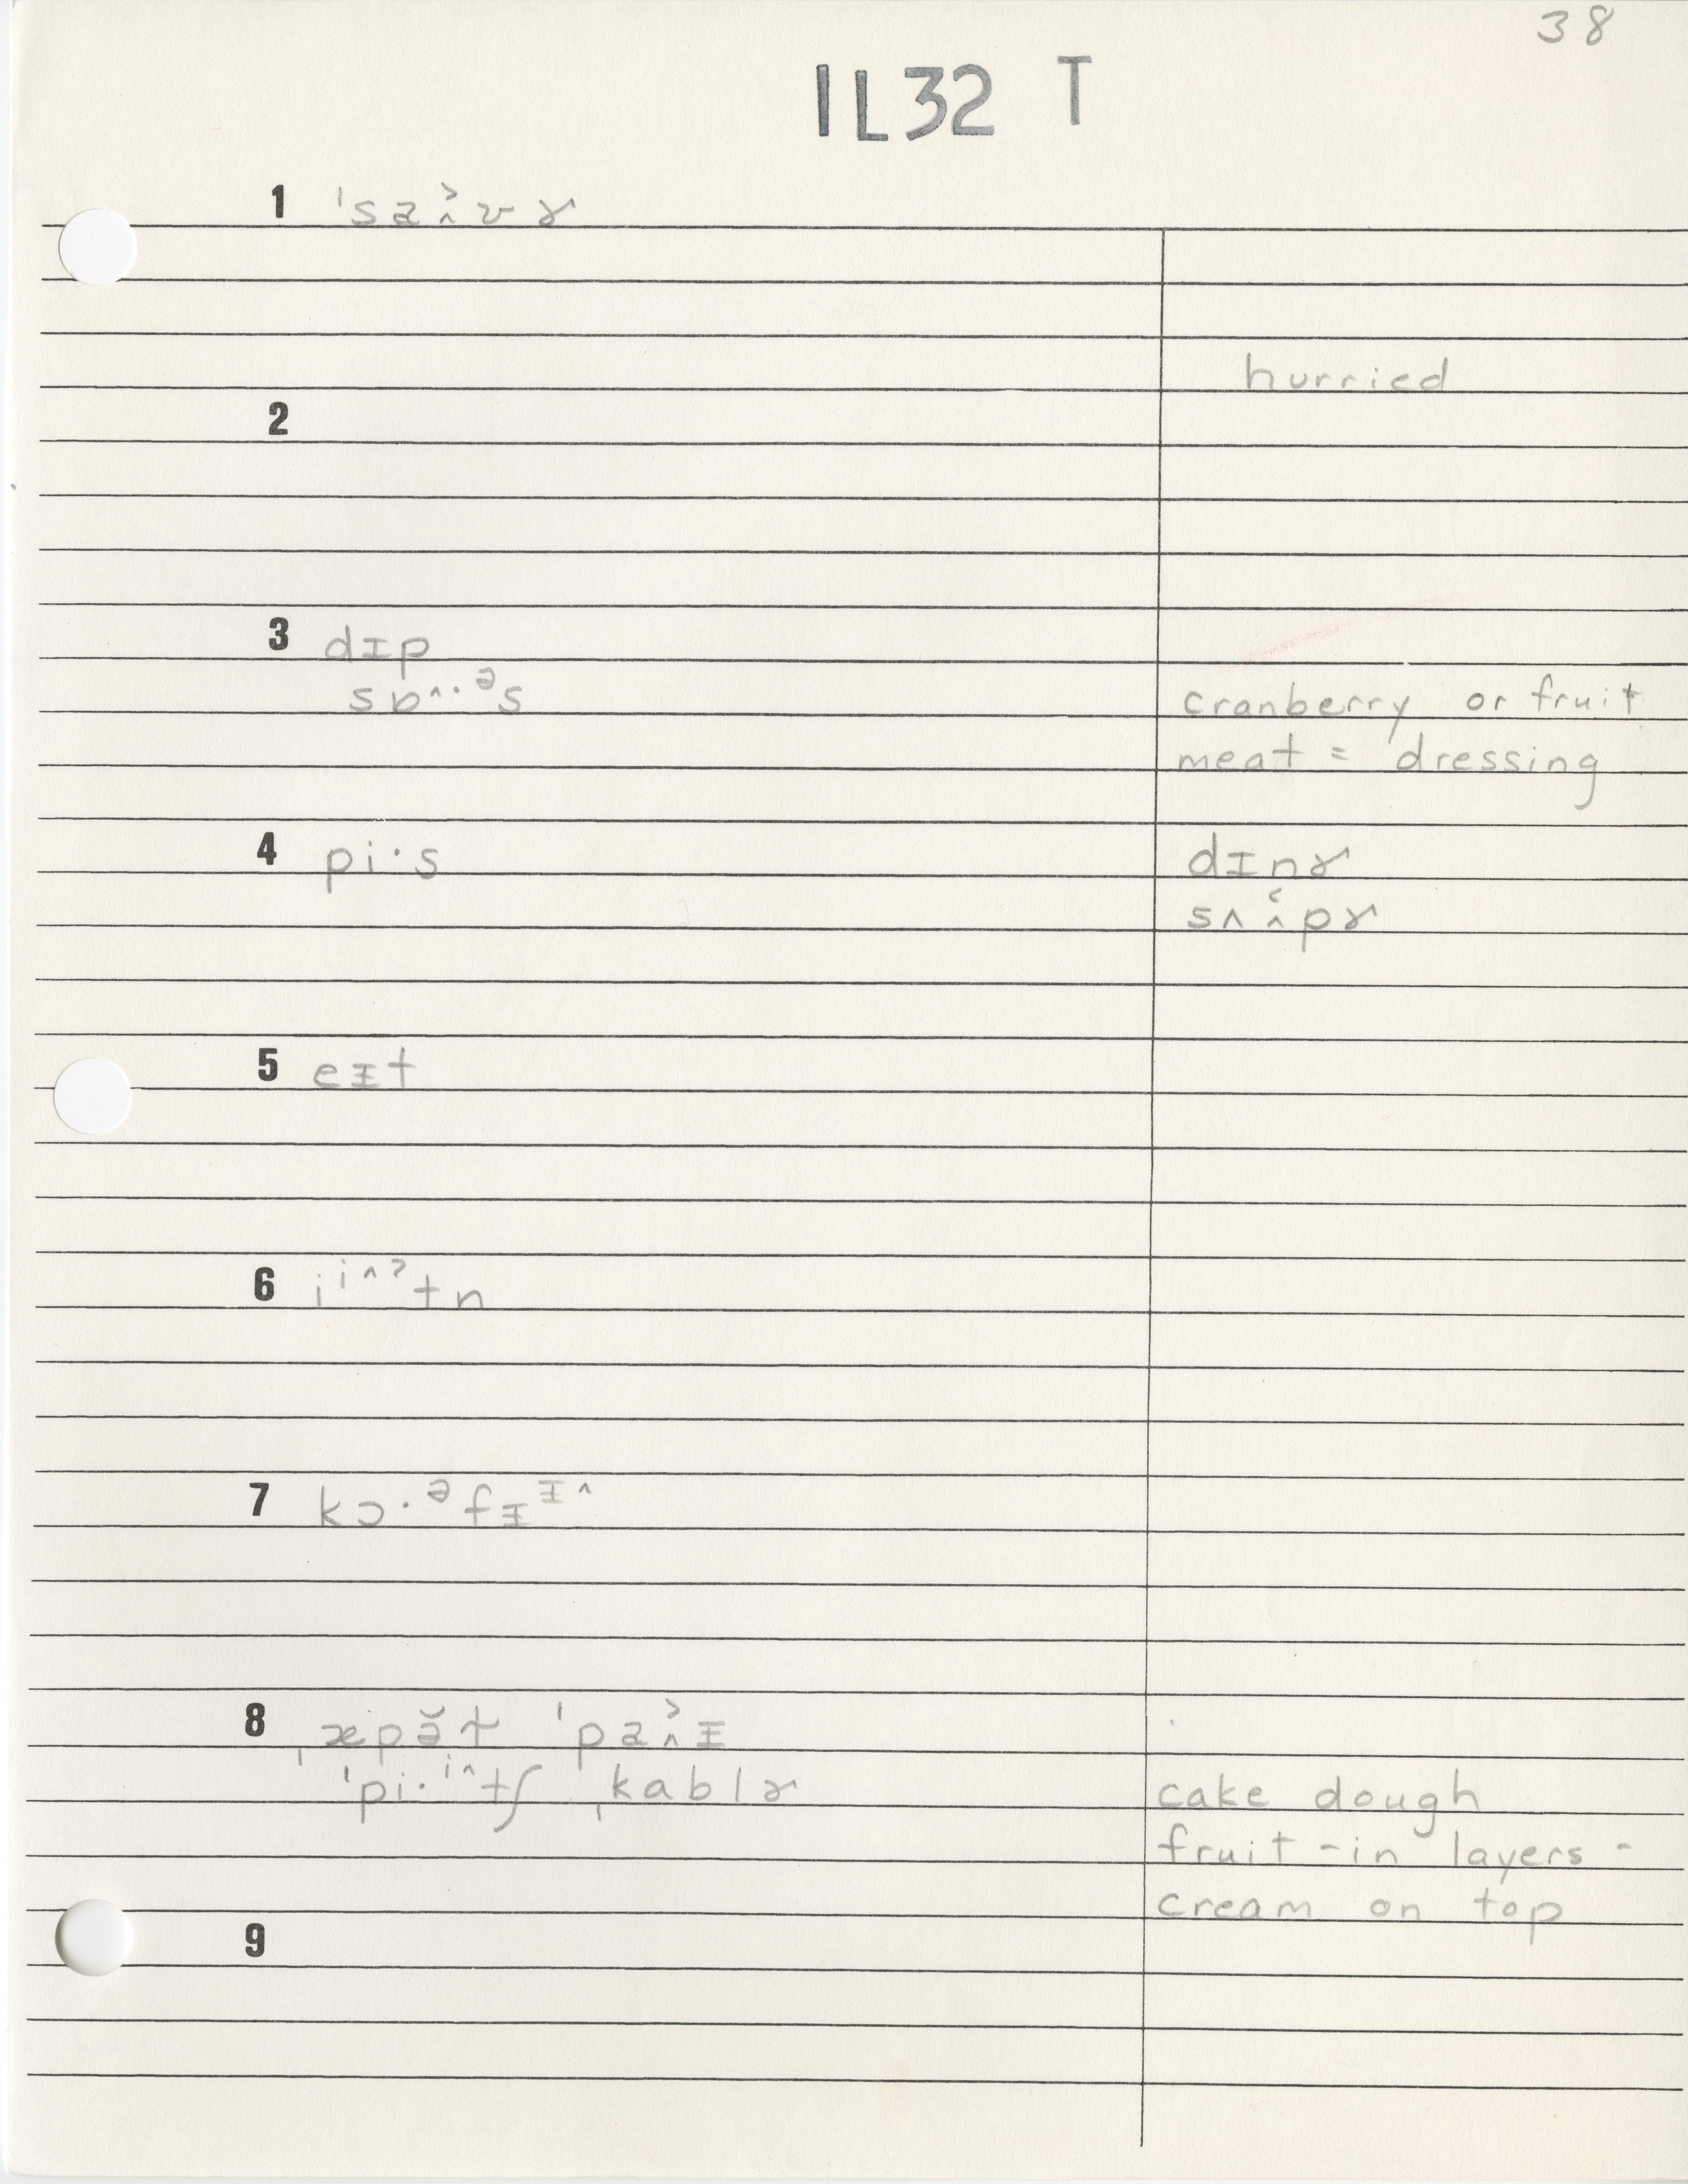 38
IL32 T
1 ˈsaɨ̞˃vɚ
hurried
2
3 dɪp
sɒ^·ᵊs
cranberry or fruit
meat = dressing
4 pi·s
dɪnɚ
sʌɨ̞˂pɚ
5 eɪt
6 iⁱ^ˀtn
7 kɔ·ᵊfɪᶦ^
8 ˌæpə̆ɫ ˈpaɨ̞˃ɪ
ˈpi·ⁱ^tʃ ˌkablɚ
cake dough
fruit - in layers -
cream on top
9